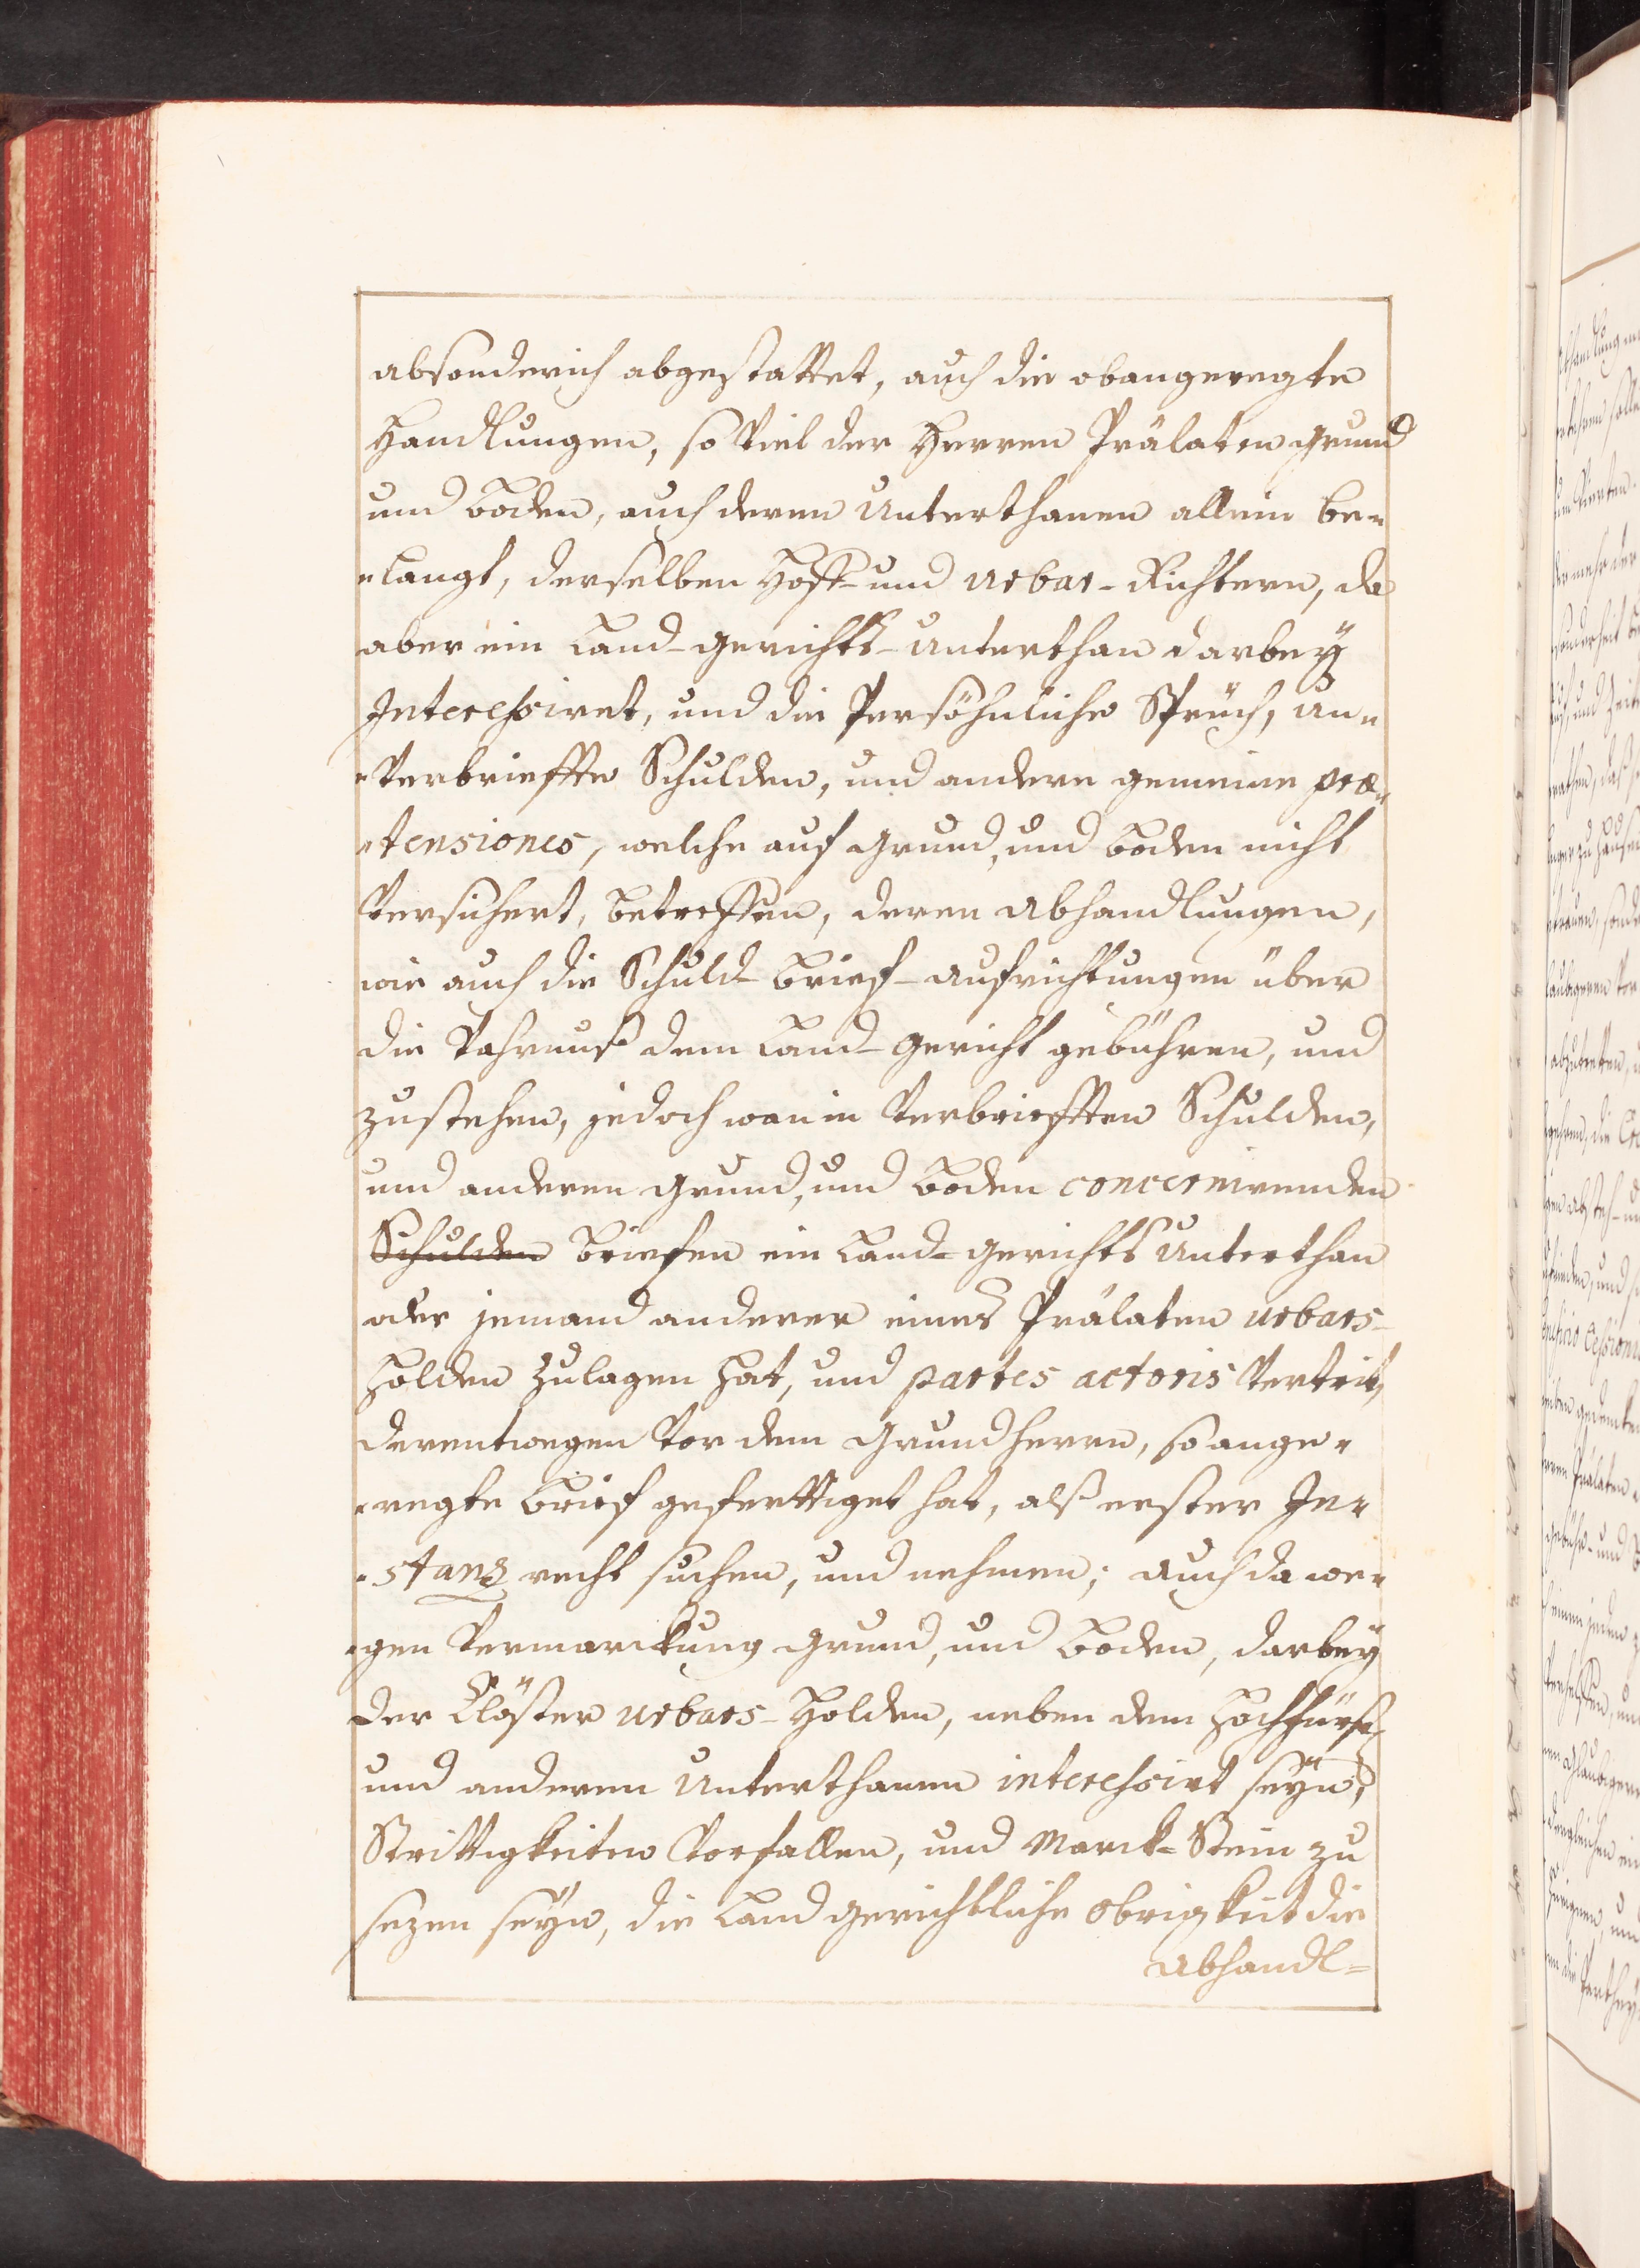 absonderich abgestattet, auch die obangeregte
Handlungen, so viel der Herren Prälaten grund
und Boden, auch deren Unterthanen allein be„
„langt, derselben Hoff- und Urbar-Richtern, da
aber ein Land-gerichts-Unterthan darbey
Interessiret, und die Persöhnliche Sprüch, un„
„verbrieffte Schulden, und andere gemeine præ„
„tensiones, welche auf grund, und boden nicht
versichert, betreffen, deren abhandlungen,
wie auch die Schuld-brief-aufrichtungen über
die Vahrnuß dem Land-gericht gebühren, und
zustehen, jedoch wan in verbriefften Schulden,
und anderen grund, und boden concernirenden
Schulden briefen ein Land-gerichts Unterthan
oder jemand anderer eines Prälaten Urbars-
Holden zulagen hat, und partes actoris vertrit,
derentwegen vor dem Grundherrn, so ange„
„regte brief gefertiget hat, alß erster In„
„stanz recht suchen, und nehmen; auch da we„
„gen vermarckung grund, und boden, darbey
der Clöster Urbars-Holden, neben dem Hochfürstl:
und anderen Unterthanen interessirt seyn,
Strittigkeiten vorfallen, und Marck-Stein zu
sezen seyn, die Land gerichtliche Obrigkeit die
abhandl=